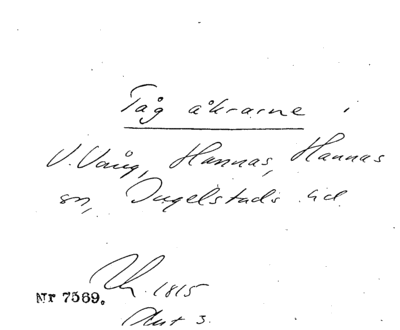 Tåg åkrarne i
V. Vång, Hannas, Hannas
sn, Ingelstads hd.
1815
Nr 7569.
Akt 3.